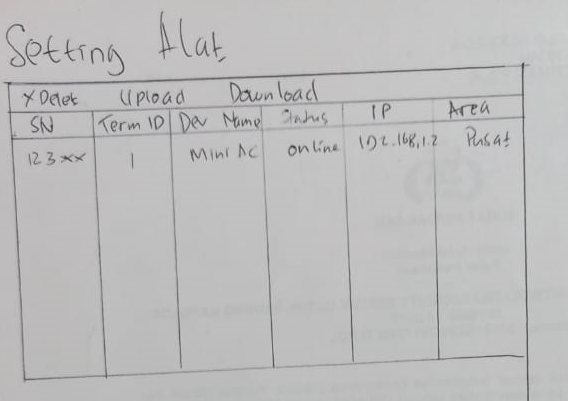 Setting Alat
X Delet Upload Download
SN Term ID Dev Name Status IP Area
123xx 1 Mini AC online 192.168.1.2 Pusat